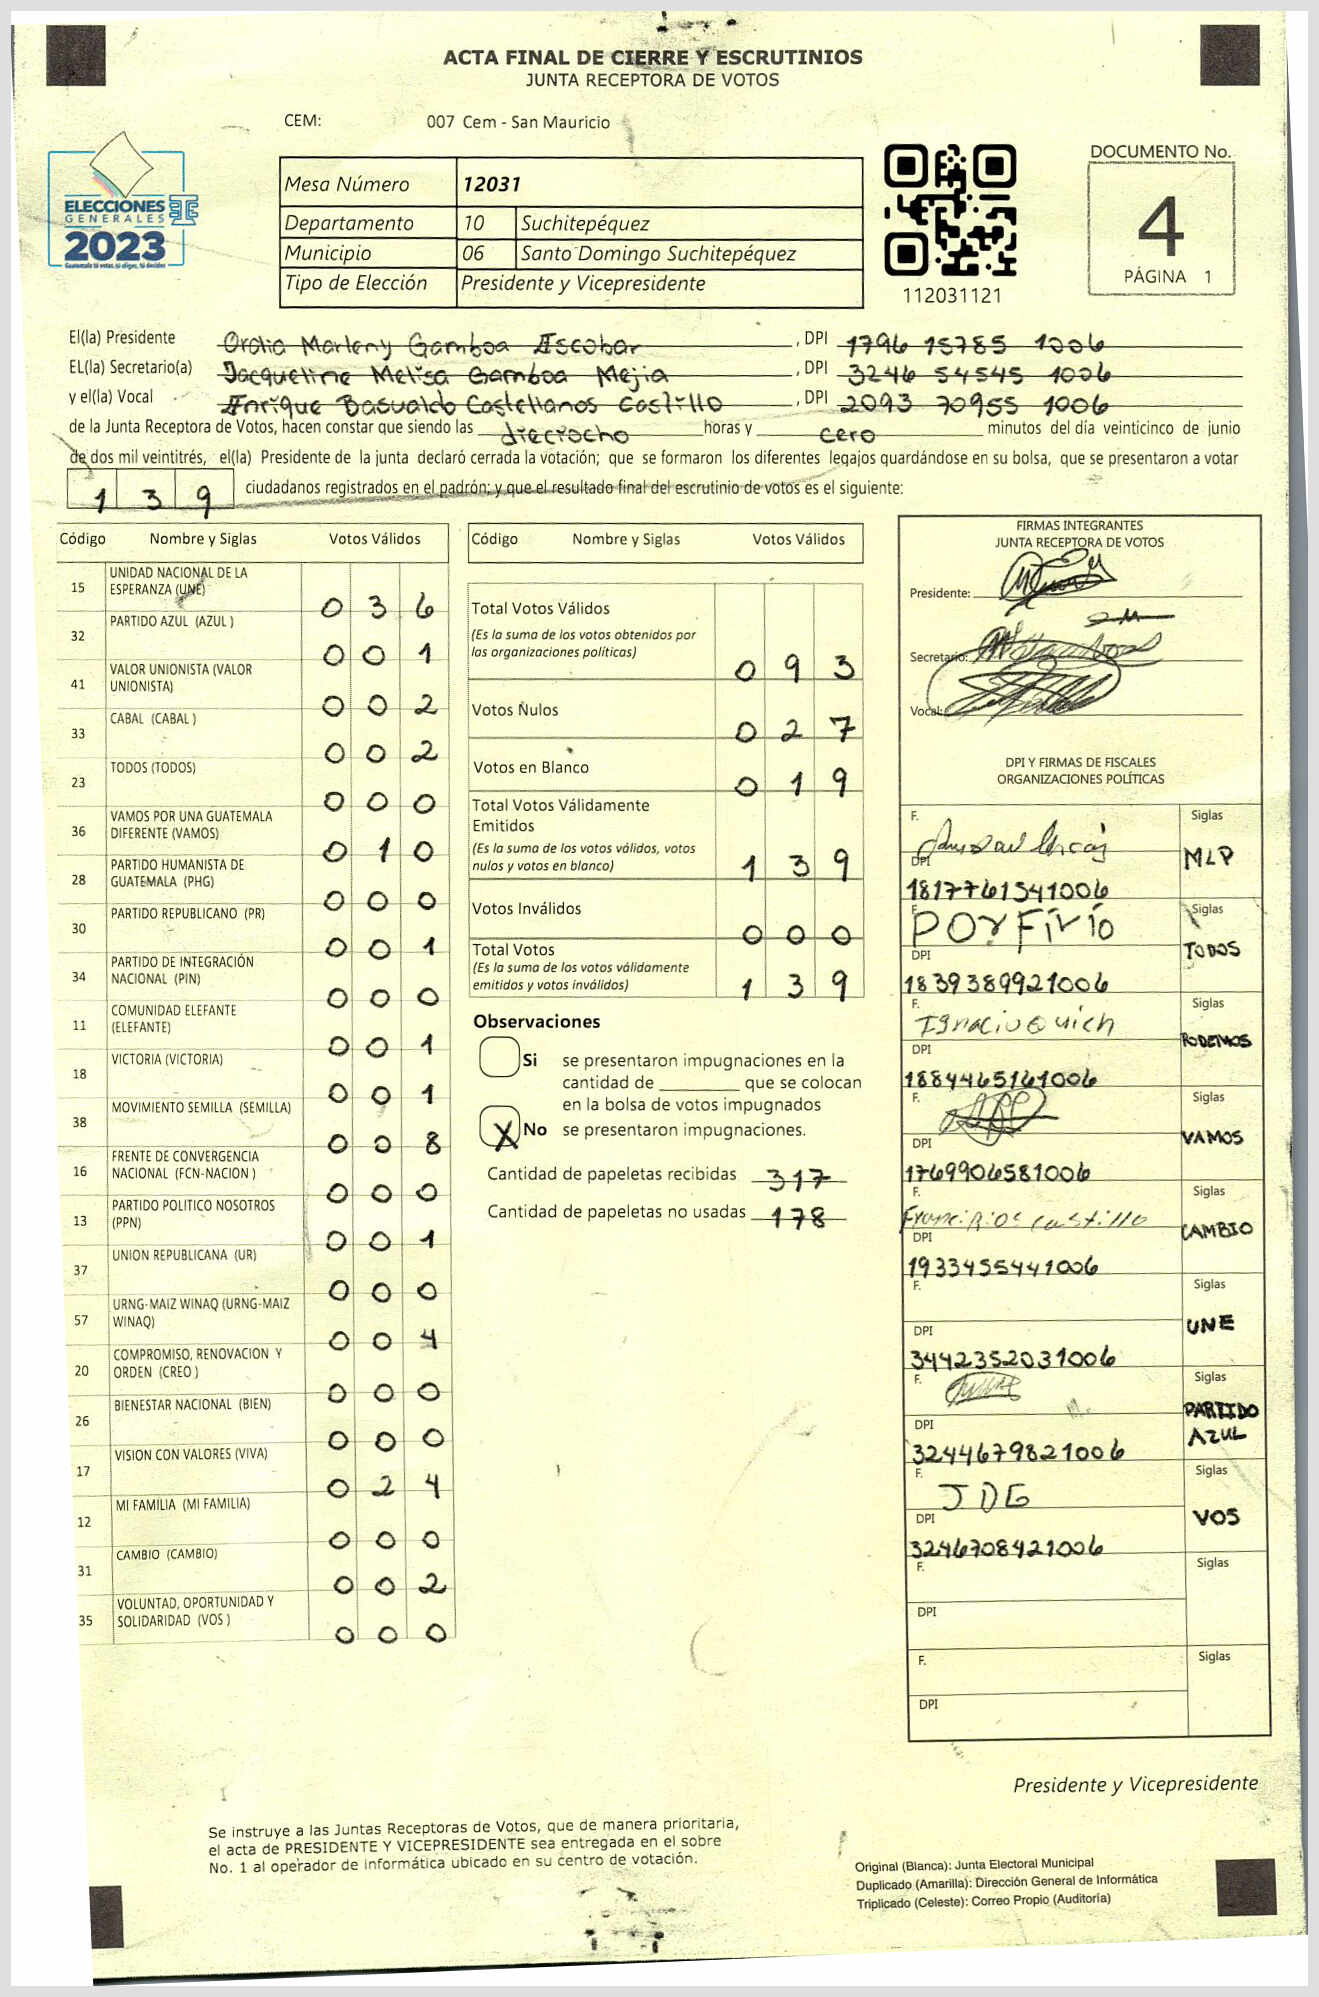 ACTA FINAL DE CIERRE Y ESCRUTINIOS
JUNTA RECEPTORA DE VOTOS
CEM: 007 Cem - San Mauricio
ELECCIONES
GENERALES
2023
Guatemala tú votas, tú eliges, tú decides
Mesa Número 12031
Departamento 10 Suchitepéquez
Municipio 06 Santo Domingo Suchitepéquez
Tipo de Elección Presidente y Vicepresidente
112031121
DOCUMENTO No.
4
PÁGINA 1
El(la) Presidente Oralia Marleny Gamboa Escobar , DPI 1796 15785 1006
EL(la) Secretario(a) Jacqueline Melisa Gamboa Mejia , DPI 3246 54545 1006
y el(la) Vocal Enrique Basualdo Castellanos Castillo , DPI 2093 70955 1006
de la Junta Receptora de Votos, hacen constar que siendo las dieciocho horas y cero minutos del día veinticinco de junio
de dos mil veintitrés, el(la) Presidente de la junta declaró cerrada la votación; que se formaron los diferentes legajos guardándose en su bolsa, que se presentaron a votar
139 ciudadanos registrados en el padrón; y que el resultado final del escrutinio de votos es el siguiente:
Código Nombre y Siglas Votos Válidos
15 UNIDAD NACIONAL DE LA
ESPERANZA (UNE) 0 3 6
32 PARTIDO AZUL (AZUL ) 0 0 1
41 VALOR UNIONISTA (VALOR
UNIONISTA) 0 0 2
33 CABAL (CABAL ) 0 0 2
23 TODOS (TODOS) 0 0 0
36 VAMOS POR UNA GUATEMALA
DIFERENTE (VAMOS) 0 1 0
28 PARTIDO HUMANISTA DE
GUATEMALA (PHG) 0 0 0
30 PARTIDO REPUBLICANO (PR) 0 0 1
34 PARTIDO DE INTEGRACIÓN
NACIONAL (PIN) 0 0 0
11 COMUNIDAD ELEFANTE
(ELEFANTE) 0 0 1
18 VICTORIA (VICTORIA) 0 0 1
38 MOVIMIENTO SEMILLA (SEMILLA) 0 0 8
16 FRENTE DE CONVERGENCIA
NACIONAL (FCN-NACION ) 0 0 0
13 PARTIDO POLITICO NOSOTROS
(PPN) 0 0 1
37 UNION REPUBLICANA (UR) 0 0 0
57 URNG-MAIZ WINAQ (URNG-MAIZ
WINAQ) 0 0 4
20 COMPROMISO, RENOVACION Y
ORDEN (CREO ) 0 0 0
26 BIENESTAR NACIONAL (BIEN) 0 0 0
17 VISION CON VALORES (VIVA) 0 2 4
12 MI FAMILIA (MI FAMILIA) 0 0 0
31 CAMBIO (CAMBIO) 0 0 2
35 VOLUNTAD, OPORTUNIDAD Y
SOLIDARIDAD (VOS ) 0 0 0
Código Nombre y Siglas Votos Válidos
Total Votos Válidos
(Es la suma de los votos obtenidos por
las organizaciones políticas) 0 9 3
Votos Nulos 0 2 7
Votos en Blanco 0 1 9
Total Votos Válidamente
Emitidos
(Es la suma de los votos válidos, votos
nulos y votos en blanco) 1 3 9
Votos Inválidos 0 0 0
Total Votos
(Es la suma de los votos válidamente
emitidos y votos inválidos) 1 3 9
Observaciones
Si se presentaron impugnaciones en la
cantidad de ________ que se colocan
en la bolsa de votos impugnados
X No se presentaron impugnaciones.
Cantidad de papeletas recibidas 317
Cantidad de papeletas no usadas 178
FIRMAS INTEGRANTES
JUNTA RECEPTORA DE VOTOS
Presidente:
Secretario:
Vocal:
DPI Y FIRMAS DE FISCALES
ORGANIZACIONES POLÍTICAS
F. Siglas
DPI MLP
1817761541006
F. Porfirio Siglas
DPI TODOS
1839389921006
F. Ignacio Quich Siglas
DPI PODEMOS
1884465161006
F. Siglas
DPI VAMOS
1769906581006
F. Franci Rios Castillo Siglas
DPI CAMBIO
1933455441006
F. Siglas
DPI UNE
3442352031006
F. Siglas
DPI PARTIDO AZUL
3244679821006
F. JDG Siglas
DPI VOS
3246708421006
F. Siglas
DPI
F. Siglas
DPI
Presidente y Vicepresidente
Se instruye a las Juntas Receptoras de Votos, que de manera prioritaria,
el acta de PRESIDENTE Y VICEPRESIDENTE sea entregada en el sobre
No. 1 al operador de informática ubicado en su centro de votación.
Original (Blanca): Junta Electoral Municipal
Duplicado (Amarilla): Dirección General de Informática
Triplicado (Celeste): Correo Propio (Auditoría)